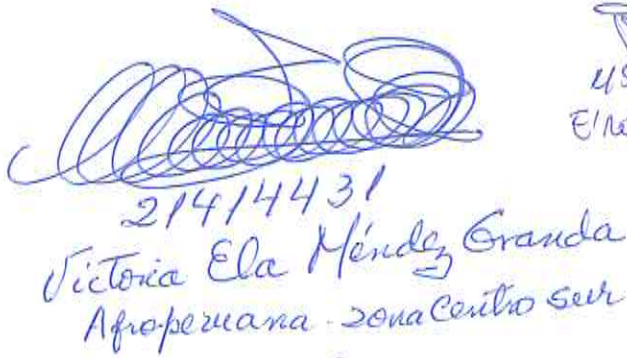 21414431
Victoria Ela Méndez Granda
Afroperuana - zona Centro Sur